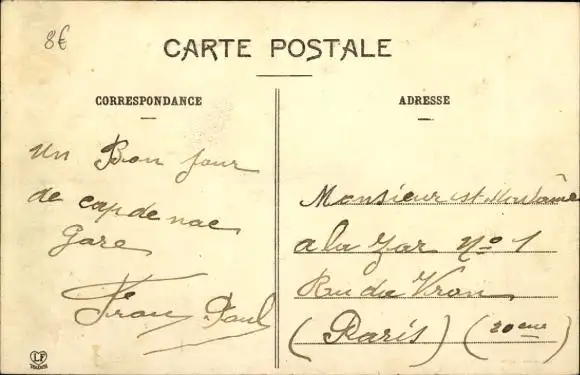 8€
CARTE POSTALE
CORRESPONDANCE
un Bon jour
de capdenac
gare
Paul
ADRESSE
Monsieur et Madame
a la
Nº 1
Rue du
(Paris) (20eme)
LF